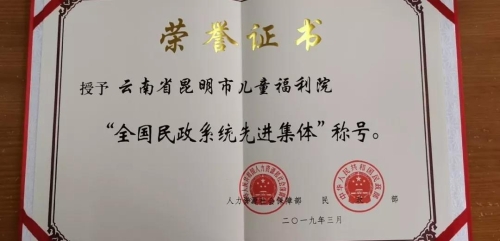 荣誉证书
授予 云南省昆明市儿童福利院
“全国民政系统先进集体”称号。
人力资源社会保障部 民政部
二〇一九年三月